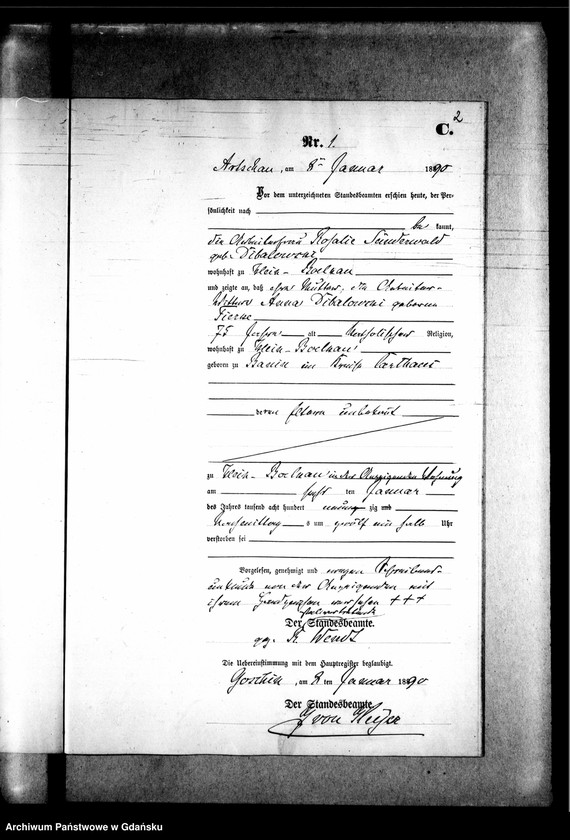 2
C.
Nr. 1.
Artschau, am 8ten Januar 1890
Vor dem unterzeichneten Standesbeamten erschien heute, der Per-
sönlichkeit nach
be kannt,
die Arbeiterfrau Rosalie Sünderwald
geb. Dibalowski
wohnhaft zu Klein-Boelkau
und zeigte an, daß ihre Mutter, die Arbeiter-
Wittwe Anna Dibalowski geborene
75 Jahre alt katholischer Religion,
wohnhaft zu Klein-Boelkau
geboren zu Banin im Kreise Carthaus
deren Eltern unbekannt
zu Klein-Boelkau in der Anzeigenden Wohnung
am ten Januar
des Jahres tausend acht hundert neunzig zig und
Nachmittag s um zwölf ein halb Uhr
verstorben sei
Vorgelesen, genehmigt und wegen Schreibens-
unkunde von der Anzeigenden mit
ihrem Handzeichen versehen +++
Der Standesbeamte.
gez. R. Wendt
Die Uebereinstimmung mit dem Hauptregister beglaubigt.
Goschin, am 8 ten Januar 1890
Der Standesbeamte.
von Heyer
Archiwum Państwowe w Gdańsku